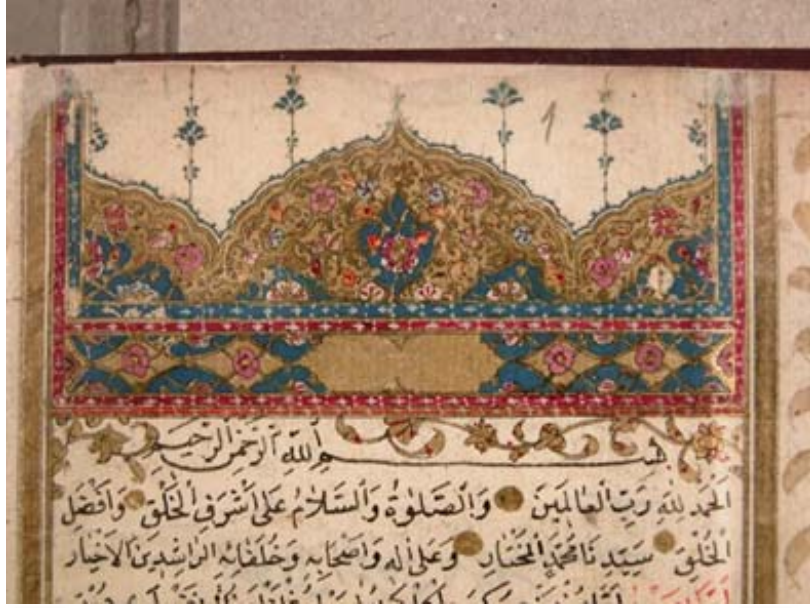 1
بسم الله الرحمن الرحيم
الحمد لله رب العالمين والصلوة والسلام على أشرف الخلق وأفضل
الخلق سيدنا محمد المختار وعلى اله واصحابه وخلفائه الراشدين الاخيار